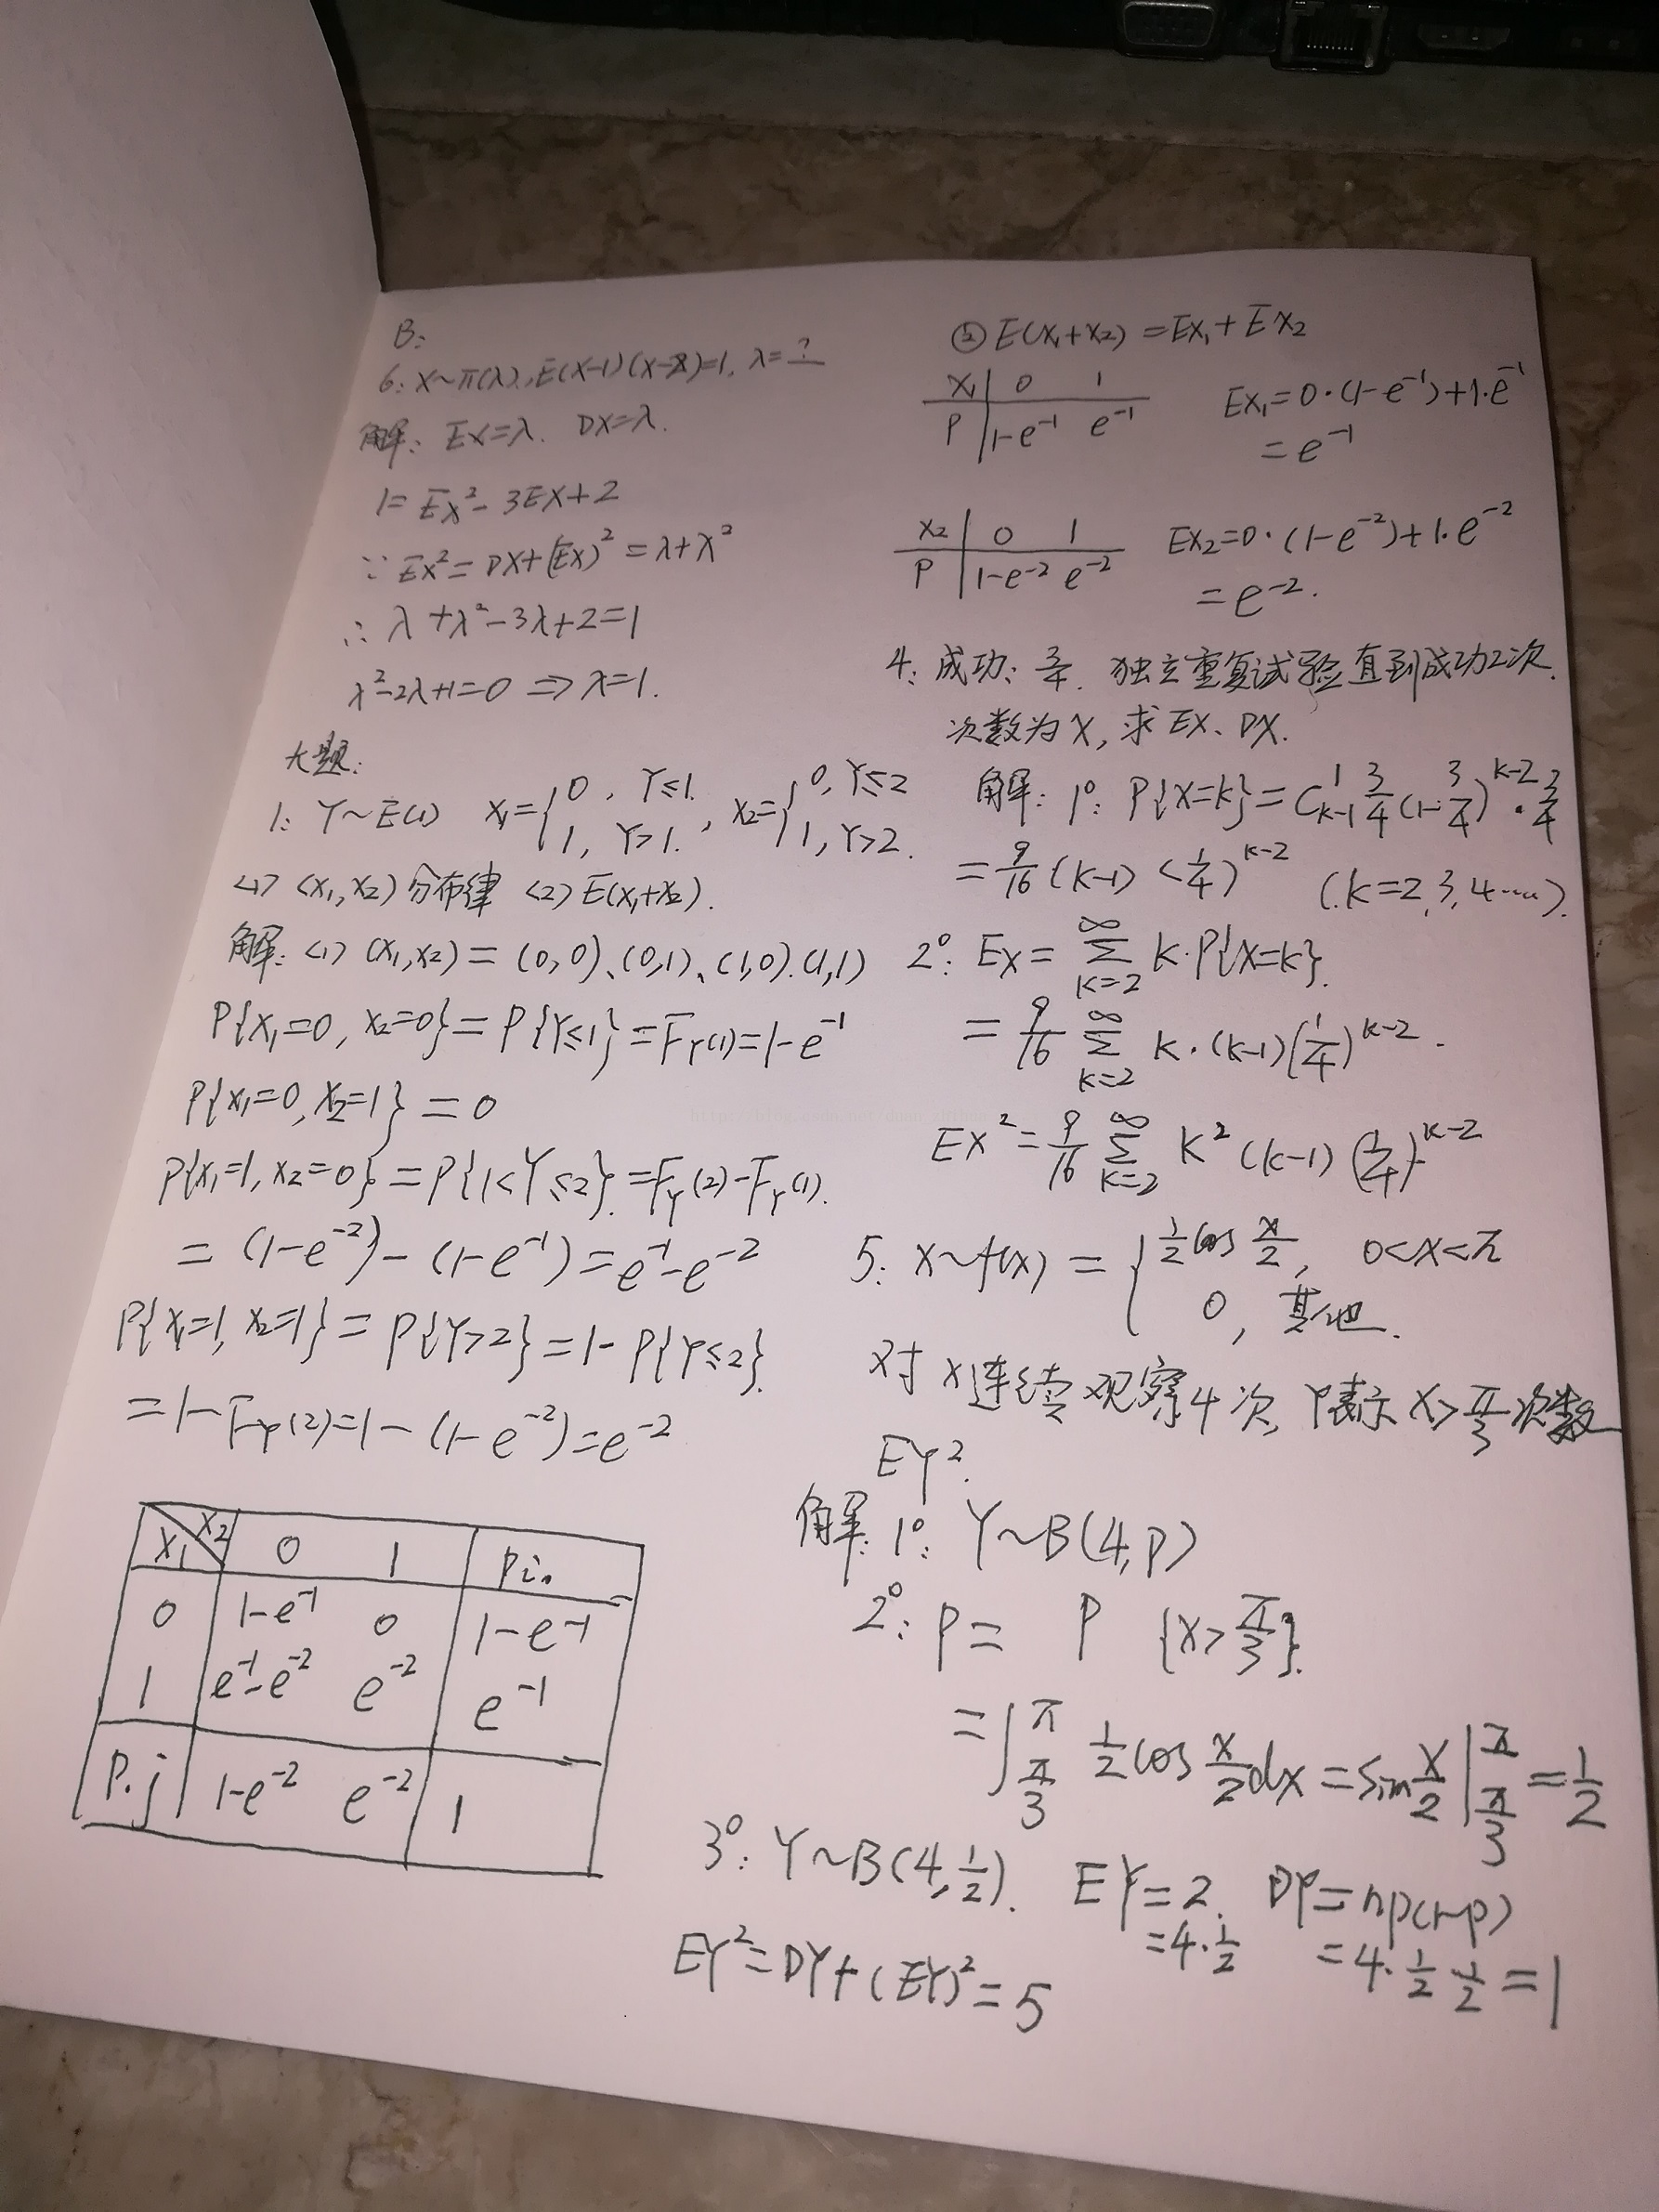 B:
6: X~π(λ), E(X-1)(X-2)=1, λ=?
解: EX=λ. DX=λ.
1=EX²-3EX+2
∵EX²=DX+(EX)²=λ+λ²
∴λ+λ²-3λ+2=1
λ²-2λ+1=0 ⇒ λ=1.
大题:
1: Y~E(1) X₁={0, Y≤1. 1, Y>1. , X₂={0, Y≤2 1, Y>2.
<1> (X₁,X₂)分布律 <2> E(X₁+X₂).
解: <1> (X₁,X₂)=(0,0)、(0,1)、(1,0).(1,1)
P{X₁=0, X₂=0}=P{Y≤1}=F_Y(1)=1-e⁻¹
P{X₁=0, X₂=1}=0
P{X₁=1, X₂=0}=P{1<Y≤2}.=F_Y(2)-F_Y(1).
=(1-e⁻²)-(1-e⁻¹)=e⁻¹-e⁻²
P{X₁=1, X₂=1}=P{Y>2}=1-P{Y≤2}.
=1-F_Y(2)=1-(1-e⁻²)=e⁻²
X₁ X₂ 0 1 Pi.
0 1-e⁻¹ 0 1-e⁻¹
1 e⁻¹-e⁻² e⁻² e⁻¹
P.j 1-e⁻² e⁻² 1
② E(X₁+X₂)=EX₁+EX₂
X₁ 0 1
P 1-e⁻¹ e⁻¹
EX₁=0·(1-e⁻¹)+1·e⁻¹
=e⁻¹
X₂ 0 1
P 1-e⁻² e⁻²
EX₂=0·(1-e⁻²)+1·e⁻²
=e⁻².
4: 成功: 3/4. 独立重复试验直到成功2次.
次数为X, 求EX、DX.
解: 1°: P{X=k}=C¹ₖ₋₁ 3/4 (1-3/4)ᵏ⁻²·3/4
=9/16 (k-1) (1/4)ᵏ⁻² (k=2,3,4……).
2°: EX=∑_{k=2}^{∞} k·P{X=k}.
=9/16 ∑_{k=2}^{∞} k·(k-1)(1/4)ᵏ⁻².
EX²=9/16 ∑_{k=2}^{∞} k²(k-1)(1/4)ᵏ⁻²
5: X~f(x)={1/2 cos x/2, 0<x<π
0, 其他.
对X连续观察4次, Y表示X>π/3次数
EY².
解: 1°: Y~B(4,P)
2°: P= P {X>π/3}.
=∫_{π/3}^{π} 1/2 cos x/2 dx=sin x/2 |_{π/3}^{π}=1/2
3°: Y~B(4,1/2). EY=2. DY=np(1-p)
=4·1/2 =4·1/2·1/2=1
EY²=DY+(EY)²=5